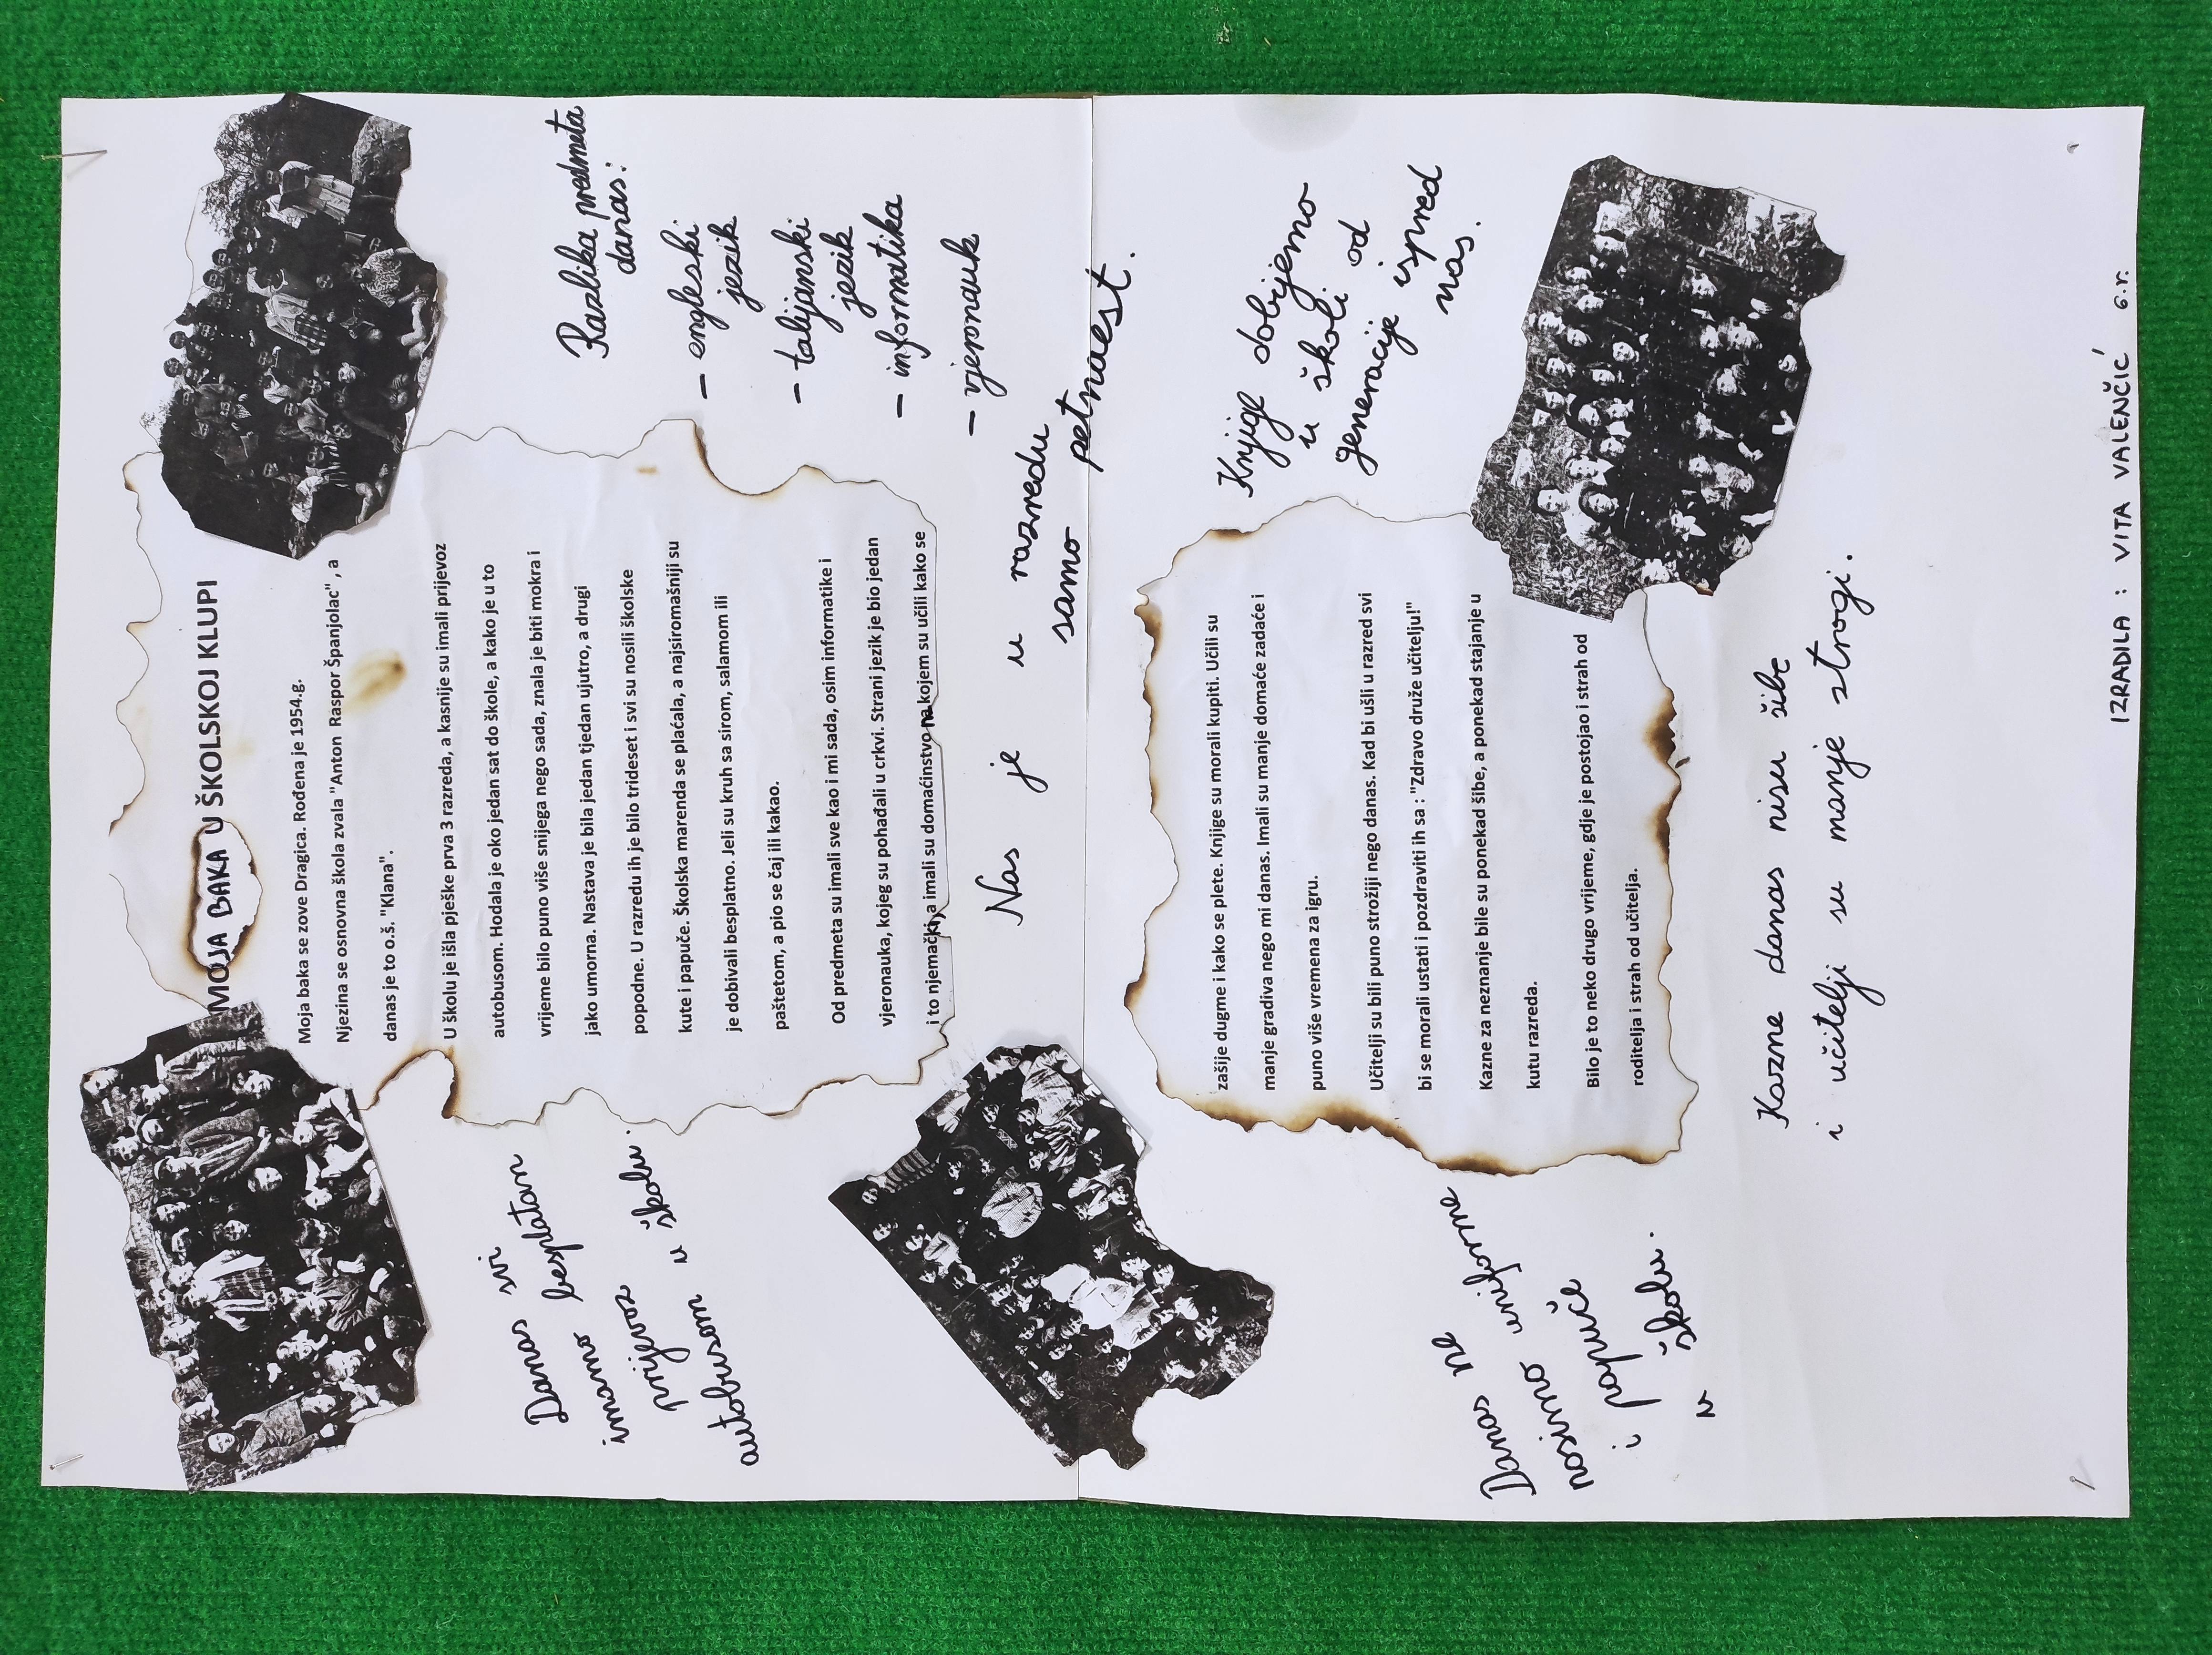 MOJA BAKA U ŠKOLSKOJ KLUPI
Moja baka se zove Dragica. Rođena je 1954.g.
Njezina se osnovna škola zvala "Anton Raspor Španjolac" , a
danas je to o.š. "Klana".
U školu je išla pješke prva 3 razreda, a kasnije su imali prijevoz
autobusom. Hodala je oko jedan sat do škole, a kako je u to
vrijeme bilo puno više snijega nego sada, znala je biti mokra i
jako umorna. Nastava je bila jedan tjedan ujutro, a drugi
popodne. U razredu ih je bilo trideset i svi su nosili školske
kute i papuče. Školska marenda se plaćala, a najsiromašniji su
je dobivali besplatno. Jeli su kruh sa sirom, salamom ili
paštetom, a pio se čaj ili kakao.
Od predmeta su imali sve kao i mi sada, osim informatike i
vjeronauka, kojeg su pohađali u crkvi. Strani jezik je bio jedan
i to njemački, a imali su domaćinstvo na kojem su učili kako se
Danas svi
imamo besplatan
prijevoz
autobusom u školu.
Razlika predmeta
danas:
- engleski
jezik
- talijanski
jezik
- informatika
- vjeronauk
Nas je u razredu
samo petnaest.
zašije dugme i kako se plete. Knjige su morali kupiti. Učili su
manje gradiva nego mi danas. Imali su manje domaće zadaće i
puno više vremena za igru.
Učitelji su bili puno strožiji nego danas. Kad bi ušli u razred svi
bi se morali ustati i pozdraviti ih sa : "Zdravo druže učitelju!"
Kazne za neznanje bile su ponekad šibe, a ponekad stajanje u
kutu razreda.
Bilo je to neko drugo vrijeme, gdje je postojao i strah od
roditelja i strah od učitelja.
Knjige dobijemo
u školi od
generacije ispred
nas.
Danas ne
nosimo uniforme
i papuče
u školu.
Kazne danas nisu šibe
i učitelji su manje strogi.
IZRADILA : VITA VALENČIĆ 6.r.